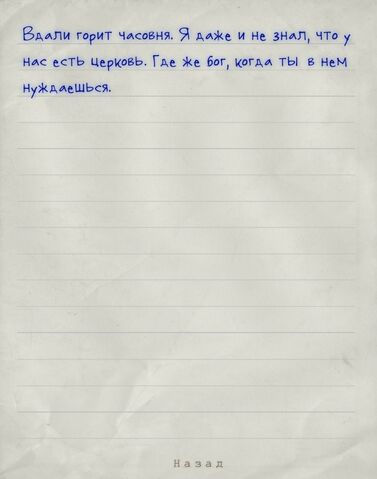 Вдали горит часовня. Я даже и не знал, что у
нас есть церковь. Где же бог, когда ты в нем
нуждаешься.
Назад